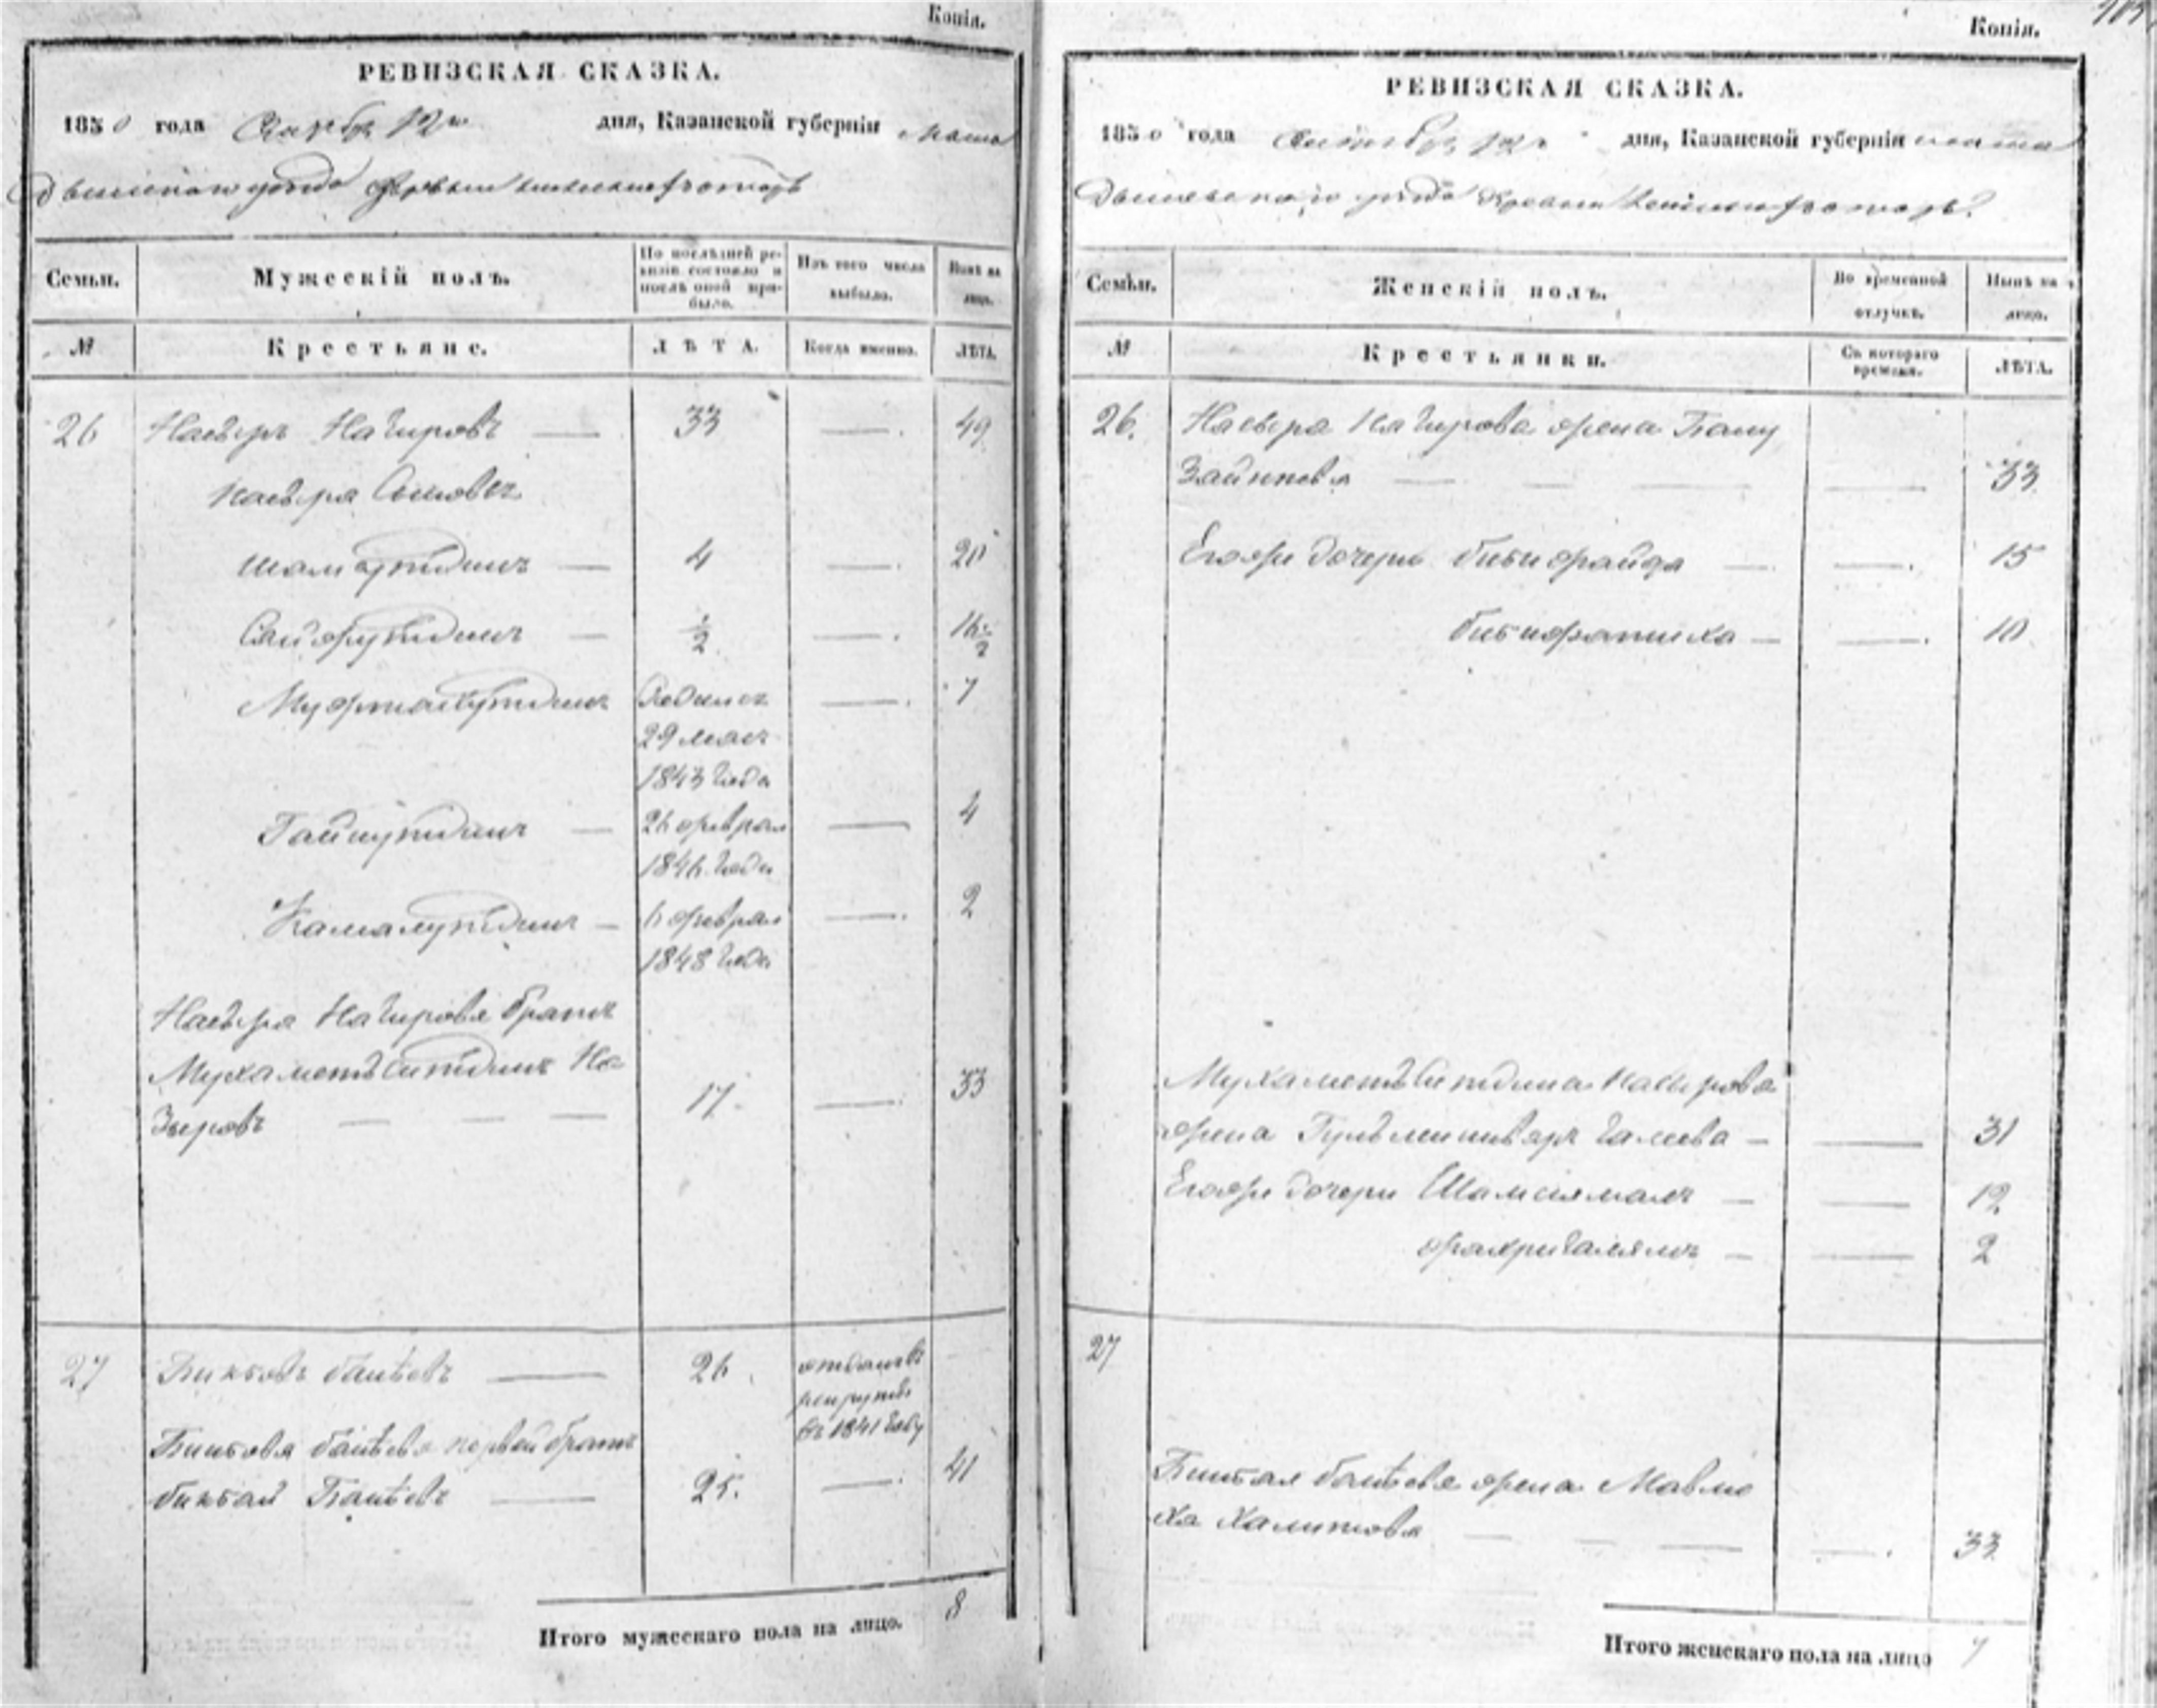 Копія.
РЕВИЗСКАЯ СКАЗКА.
1850 года Октября 12 дня, Казанской губерніи Мама
дышскаго уѣзда деревни
Семьи.
Мужескій полъ.
По послѣдней ре-
визіи состояло и
послѣ оной при-
было.
Изъ того числа
выбыло.
Нынѣ на
лицо.
№
Крестьяне.
ЛѢТА.
Когда именно.
ЛѢТА.
26 Насыръ Нагировъ 33 49
Насыра Сыновья
Шамсутдинъ 4 20
Сайфутдинъ ½ 16½
Мифтахутдинъ Родился 7
29 маія
1843 года
Гайнутдинъ 26 февраля 4
1846 года
Камалутдинъ 6 февраля 2
1848 года
Насыра Нагирова братъ
Мухаметъ Ситдикъ На
зыровъ 17 33
27 Биктовъ Баитевъ 26 отданъ въ
рекруты
въ 1841 году
Биктова Баитева первой братъ
Биктай Баитевъ 25. 41
Итого мужескаго пола на лицо. 8
Копія.
РЕВИЗСКАЯ СКАЗКА.
1850 года Октября 12 дня, Казанской губерніи Мама
дышскаго уѣзда деревни
Семьи.
Женскій полъ.
Во временной
отлучкѣ.
Нынѣ на
лицо.
№
Крестьянки.
Съ котораго
времени.
ЛѢТА.
26. Насыра Нагирова жена Бану
Заитова 33
Егожъ дочери Бибифайза 15
Бибифатиха 10
Мухаметъ Ситдика Насырова
жена Галеева 31
Егожъ дочери Шамсіямалъ 12
Фахригалямъ 2
27
Биктая Баитева жена Мавлю
ха Халитова 33
Итого женскаго пола на лицо 7